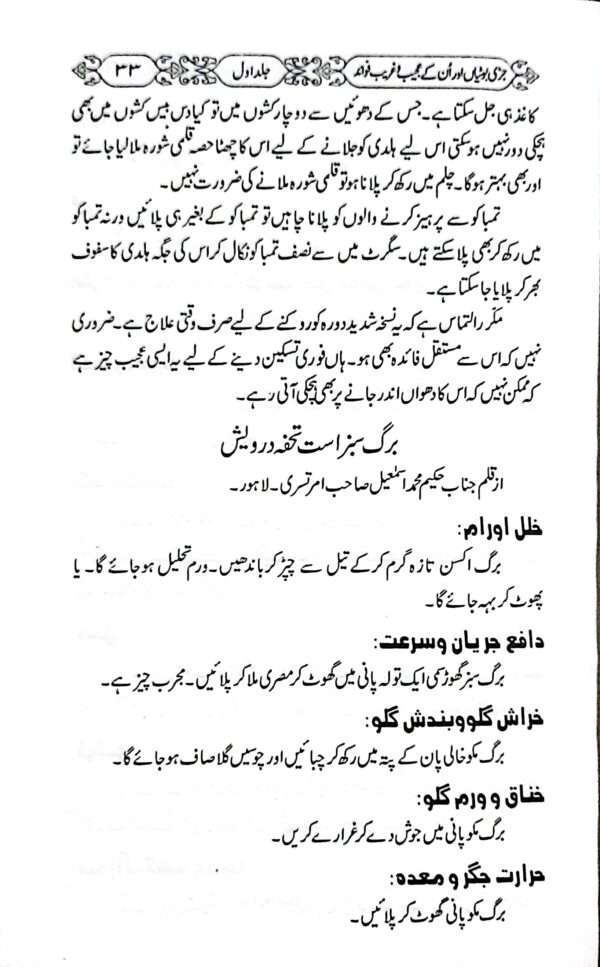 جڑی بوٹیاں اور اُن کے عجیب و غریب فوائد جلد اول ۳۳
کاغذ ہی جل سکتا ہے۔ جس کے دھوئیں سے دو چار کشوں میں تو کیا دس بیس کشوں میں بھی
ہچکی دور نہیں ہو سکتی اس لیے ہلدی کو جلانے کے لیے اس کا چھٹا حصہ قلمی شورہ ملا لیا جائے تو
اور بھی بہتر ہو گا۔ چلم میں رکھ کر پلانا ہو تو قلمی شورہ ملانے کی ضرورت نہیں۔
تمباکو سے پرہیز کرنے والوں کو پلانا چاہیں تو تمباکو کے بغیر ہی پلائیں ورنہ تمباکو
میں رکھ کر بھی پلا سکتے ہیں۔ سگرٹ میں سے نصف تمباکو نکال کر اس کی جگہ ہلدی کا سفوف
بھر کر پلایا جا سکتا ہے۔
مکرر التماس ہے کہ یہ نسخہ شدید دورہ کو روکنے کے لیے صرف وقتی علاج ہے۔ ضروری
نہیں کہ اس سے مستقل فائدہ بھی ہو۔ ہاں فوری تسکین دینے کے لیے یہ ایسی عجیب چیز ہے
کہ ممکن نہیں کہ اس کا دھواں اندر جانے پر بھی ہچکی آتی رہے۔
برگ سبز است تحفہ درویش
از قلم جناب حکیم محمد اسمٰعیل صاحب امرتسری۔ لاہور۔
خلل اورام:
برگ اکسن تازہ گرم کر کے تیل سے چپڑ کر باندھیں۔ ورم تحلیل ہو جائے گا۔ یا
پھوٹ کر بہہ جائے گا۔
دافع جریان وسرعت:
برگ سبز گھوڑسمی ایک تولہ پانی میں گھوٹ کر مصری ملا کر پلائیں۔ مجرب چیز ہے۔
خراش گلو وبندش گلو:
برگ مکو خالی پان کے پتہ میں رکھ کر چبائیں اور چوسیں گلا صاف ہو جائے گا۔
خناق و ورم گلو:
برگ مکو پانی میں جوش دے کر غرارے کریں۔
حرارت جگر و معدہ:
برگ مکو پانی گھوٹ کر پلائیں۔